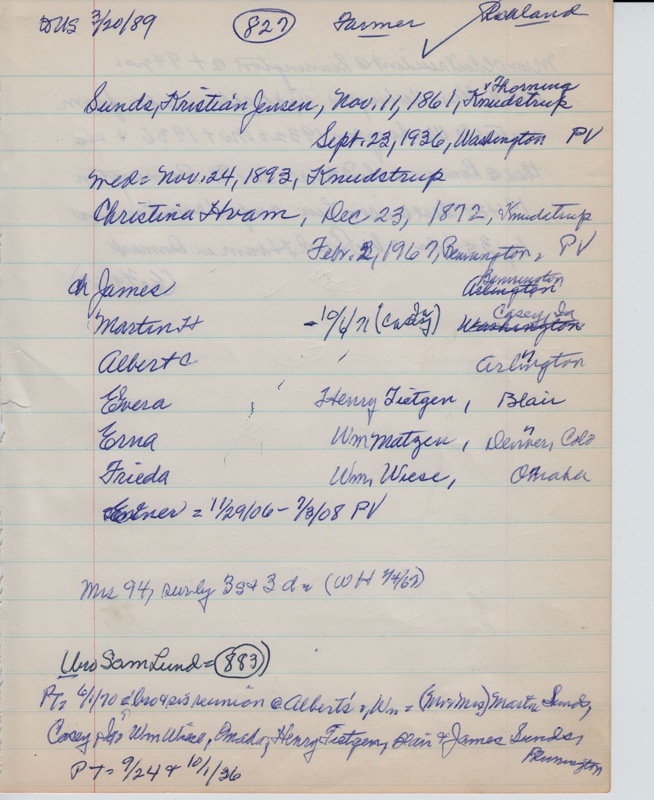 to US 3/20/89 827 Farmer Roaland
Thorning
Sunds, Kristian Jensen, Nov. 11, 1861, Knudstrup
Sept. 23, 1936, Washington PV
med = Nov. 24, 1893, Knudstrup
Christina Hvam, Dec 23, 1872, Knudstrup
Febr. 2, 1967, Bennington, PV
Bennington
ch James Arlington
Casey, Ia
Martin H - 10/6/71 (Casey Ia) Washington
Albert C " Arlington
Evera Henry Tietgen, Blair
Erna Wm Matzen, Denver, Colo
Frieda Wm, Wiese, Omaha
Einer = 11/29/06 - 7/3/08 PV
Mrs 94, surv by 3 s + 3 d = (WH 2/4/67)
Uno Sam Lund = 883
PT = 6/1/70 = bro & sis reunion @ Albert's =, Wn = (Mr & Mrs) Martin Sunds,
Casey, Ia, Wm Wiese, Omaha, Henry Tietgen, Blair & James Sunds,
Bennington
PT = 9/24 & 10/1/36